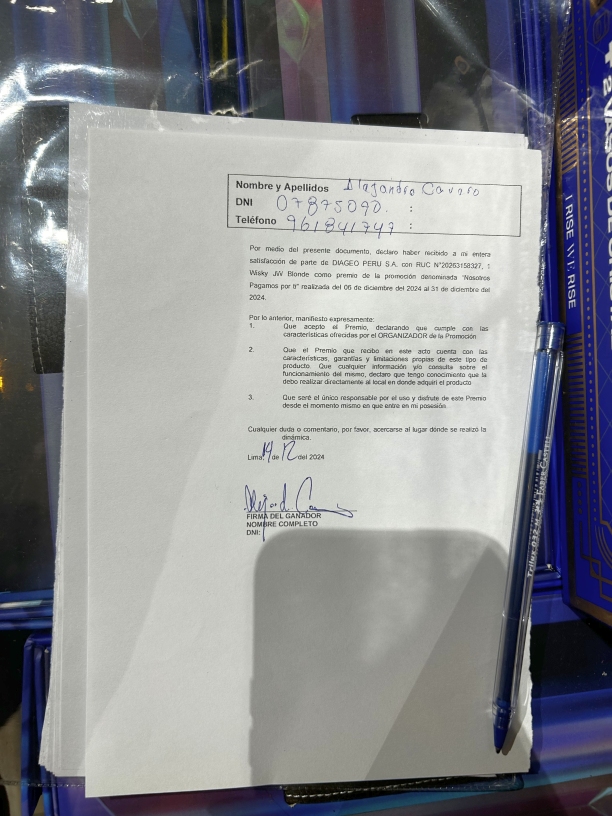 Nombre y Apellidos Alejandro Cavero
DNI 07875090. :
Teléfono 961841747 :
Por medio del presente documento, declaro haber recibido a mi entera
satisfacción de parte de DIAGEO PERU S.A. con RUC N°20263158327, 1
Wisky JW Blonde como premio de la promoción denominada "Nosotros
Pagamos por ti" realizada del 06 de diciembre del 2024 al 31 de diciembre del
2024.
Por lo anterior, manifiesto expresamente:
1. Que acepto el Premio, declarando que cumple con las
características ofrecidas por el ORGANIZADOR de la Promoción
2. Que el Premio que recibo en este acto cuenta con las
características, garantías y limitaciones propias de este tipo de
producto. Que cualquier información y/o consulta sobre el
funcionamiento del mismo, declaro que tengo conocimiento que la
debo realizar directamente al local en donde adquirí el producto
3. Que seré el único responsable por el uso y disfrute de este Premio
desde el momento mismo en que entre en mi posesión.
Cualquier duda o comentario, por favor, acercarse al lugar dónde se realizó la
dinámica.
Lima, 14 de 12 del 2024
FIRMA DEL GANADOR
NOMBRE COMPLETO
DNI:
I RISE WE RISE
Trilux 032 M FABER-CASTELL